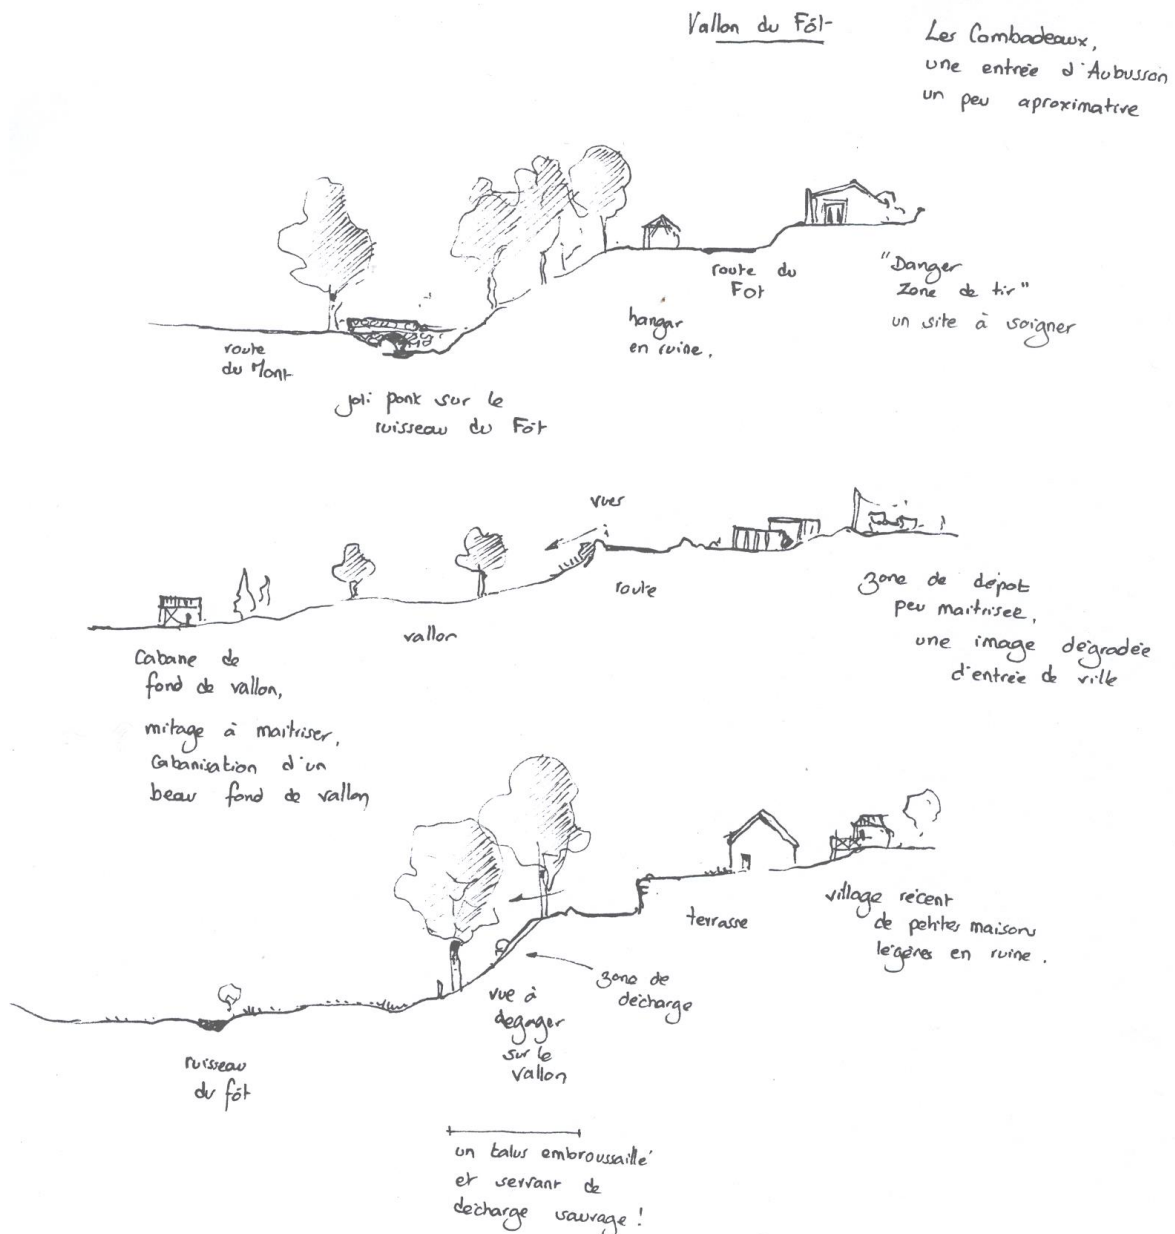 Vallon du Fôt
Les Combadeaux,
une entrée d'Aubusson
un peu aproximative
route du
Fot
"Danger
Zone de tir"
un site à soigner
hangar
en ruine.
route
du Mont
joli pont sur le
ruisseau du Fôt
vues
route
zone de dépot
peu maitrisée,
une image dégradée
d'entrée de ville
vallon
Cabane de
fond de vallon,
mitage à maitriser,
Cabanisation d'un
beau fond de vallon
terrasse
village récent
de petites maisons
légères en ruine.
zone de
décharge
vue à
dégager
sur le
vallon
ruisseau
du fôt
un talus embroussaillé
et servant de
décharge sauvage !